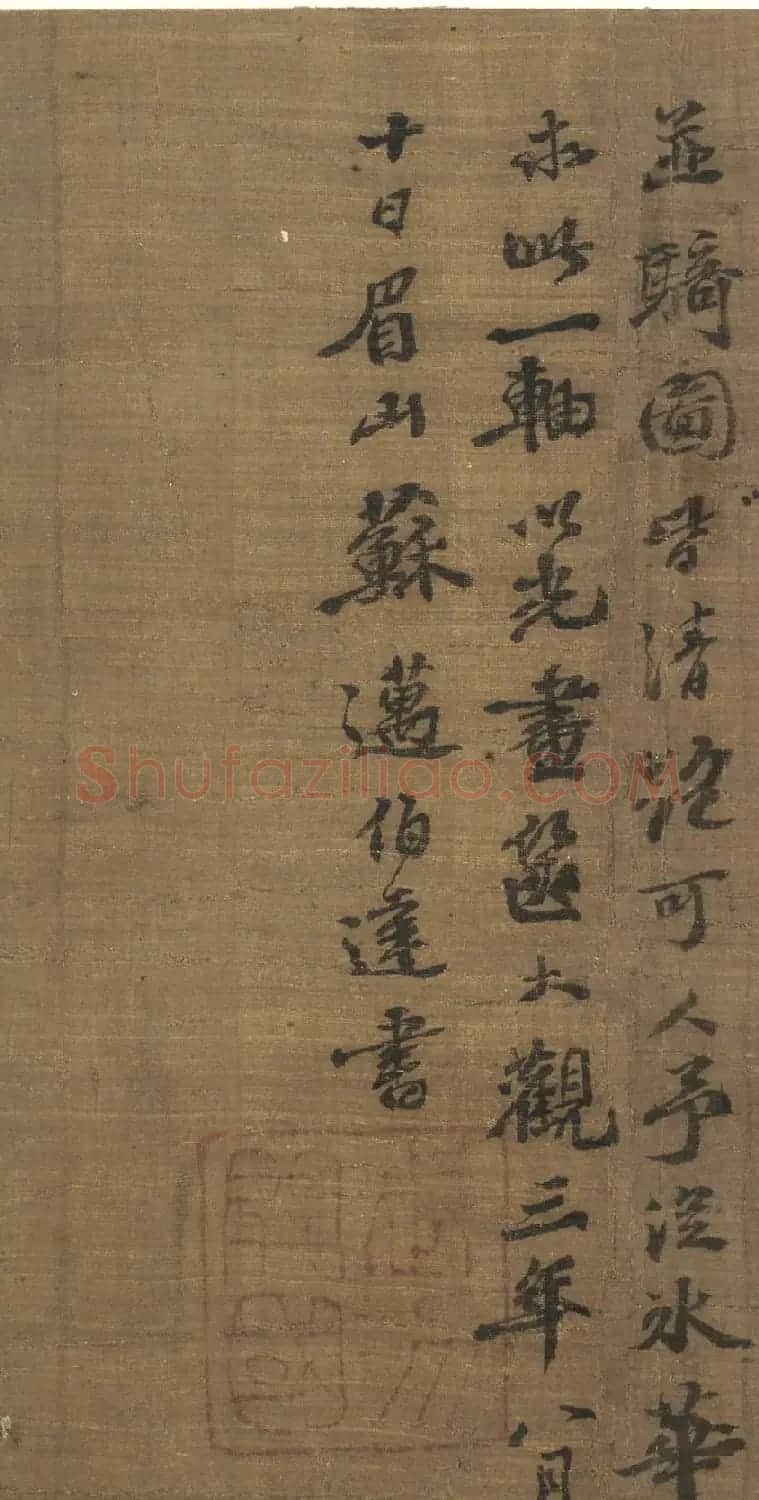 並騎圖皆清能可人予從冰華
求此一軸以光畫篋大觀三年八月
十日眉山蘇邁伯達書
Shufaziliao.COM